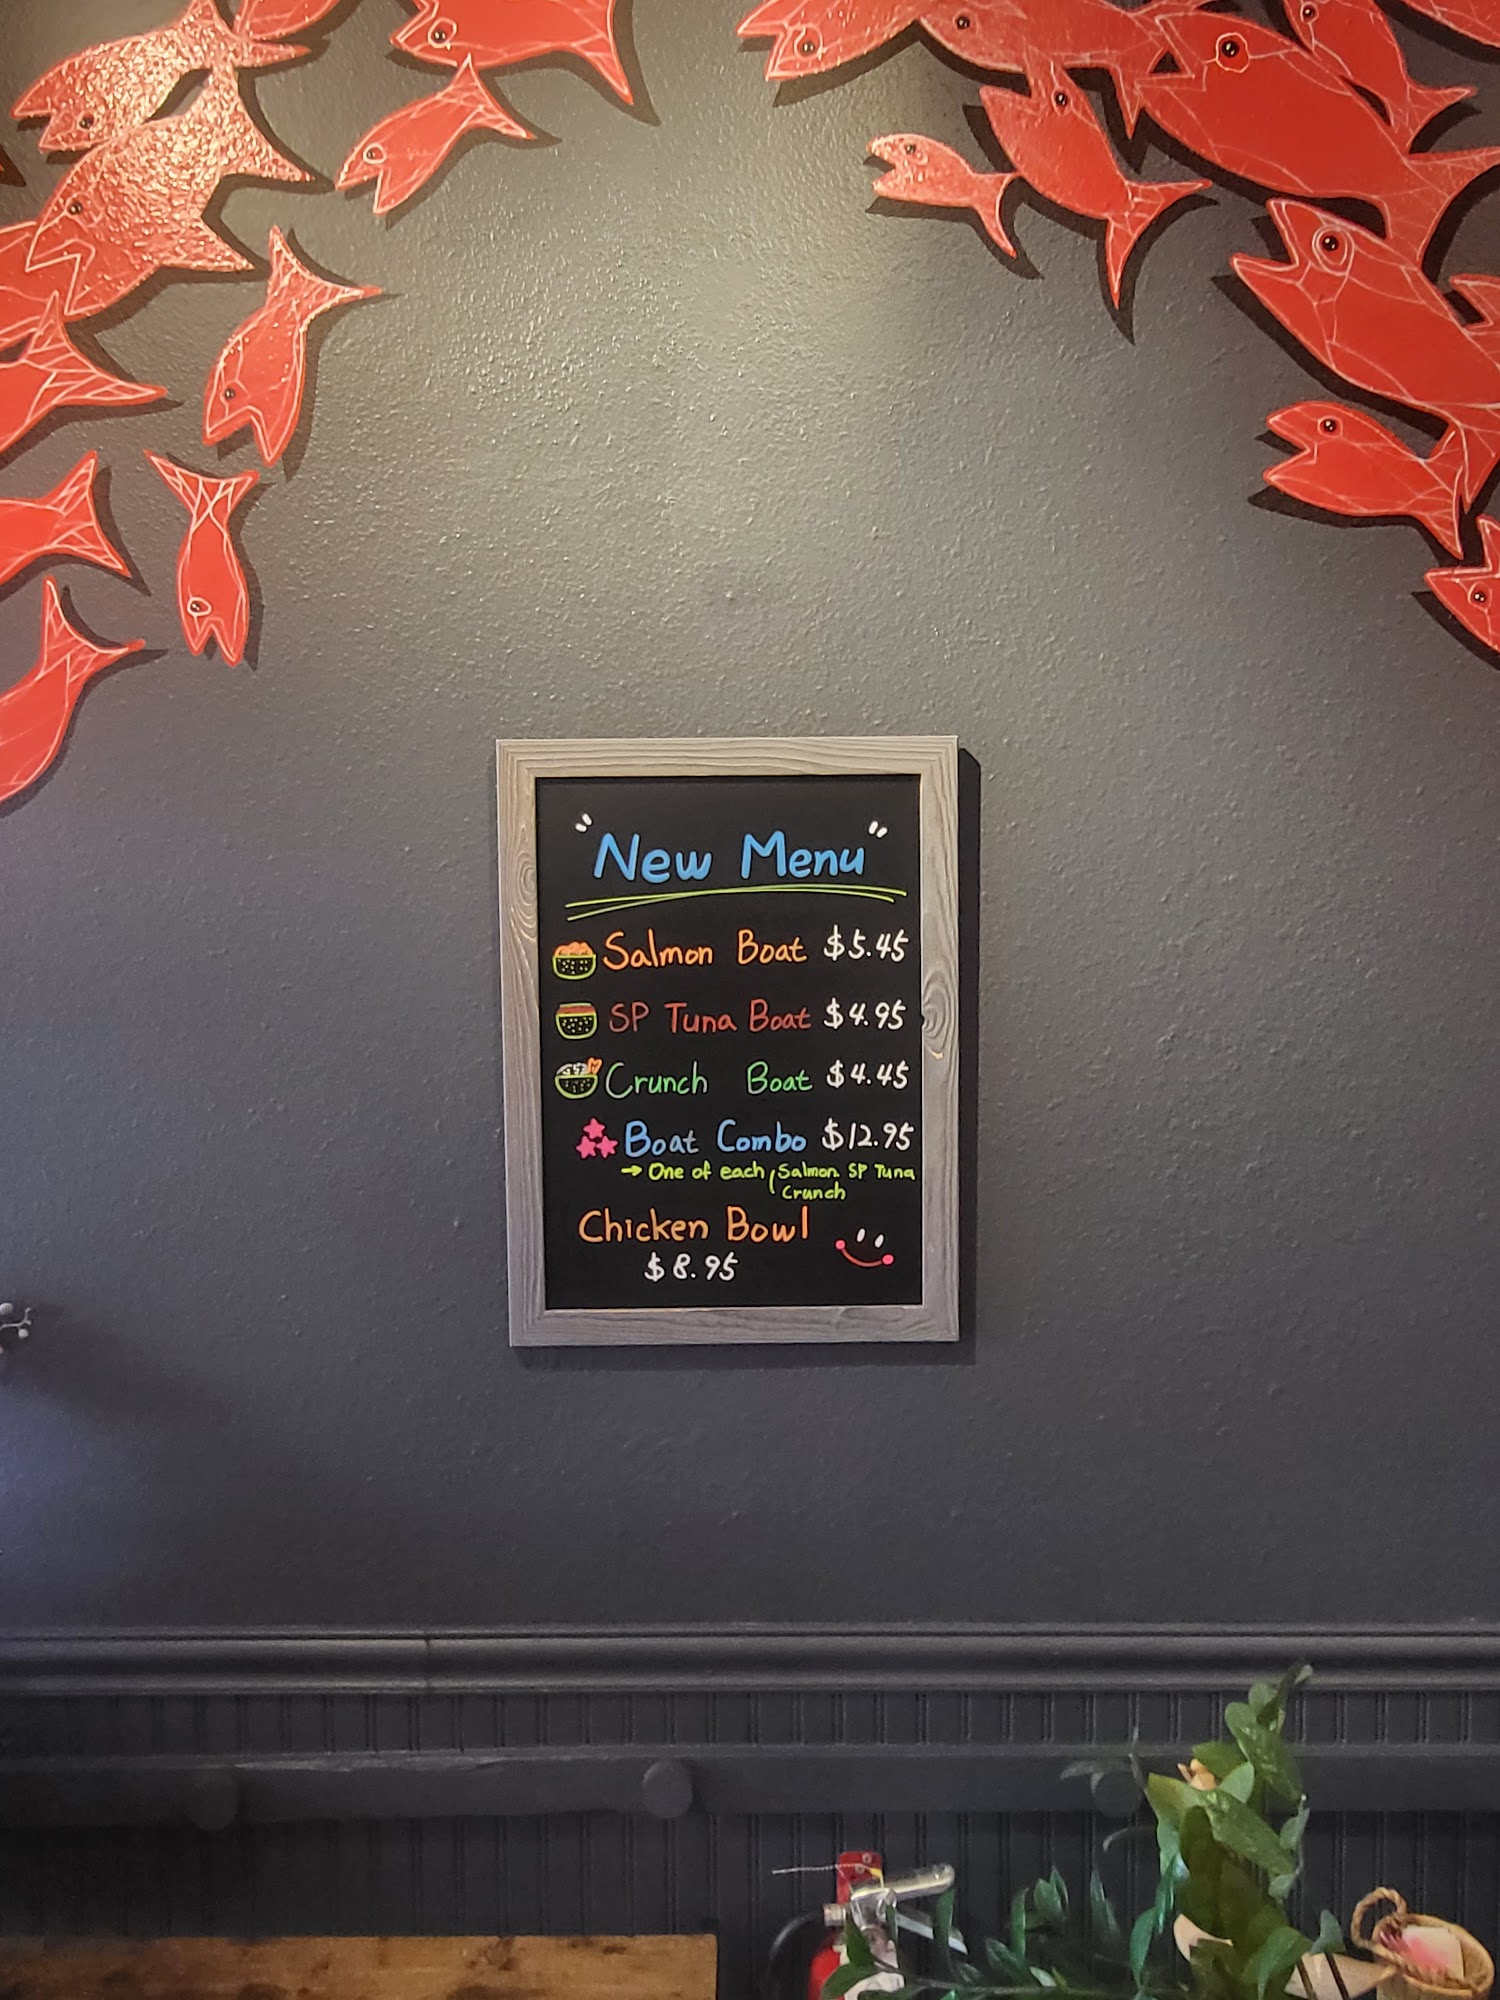 "New Menu"
Salmon Boat $5.45
SP Tuna Boat $4.95
Crunch Boat $4.45
Boat Combo $12.95
→ One of each ( Salmon. SP Tuna
Crunch
Chicken Bowl
$8.95